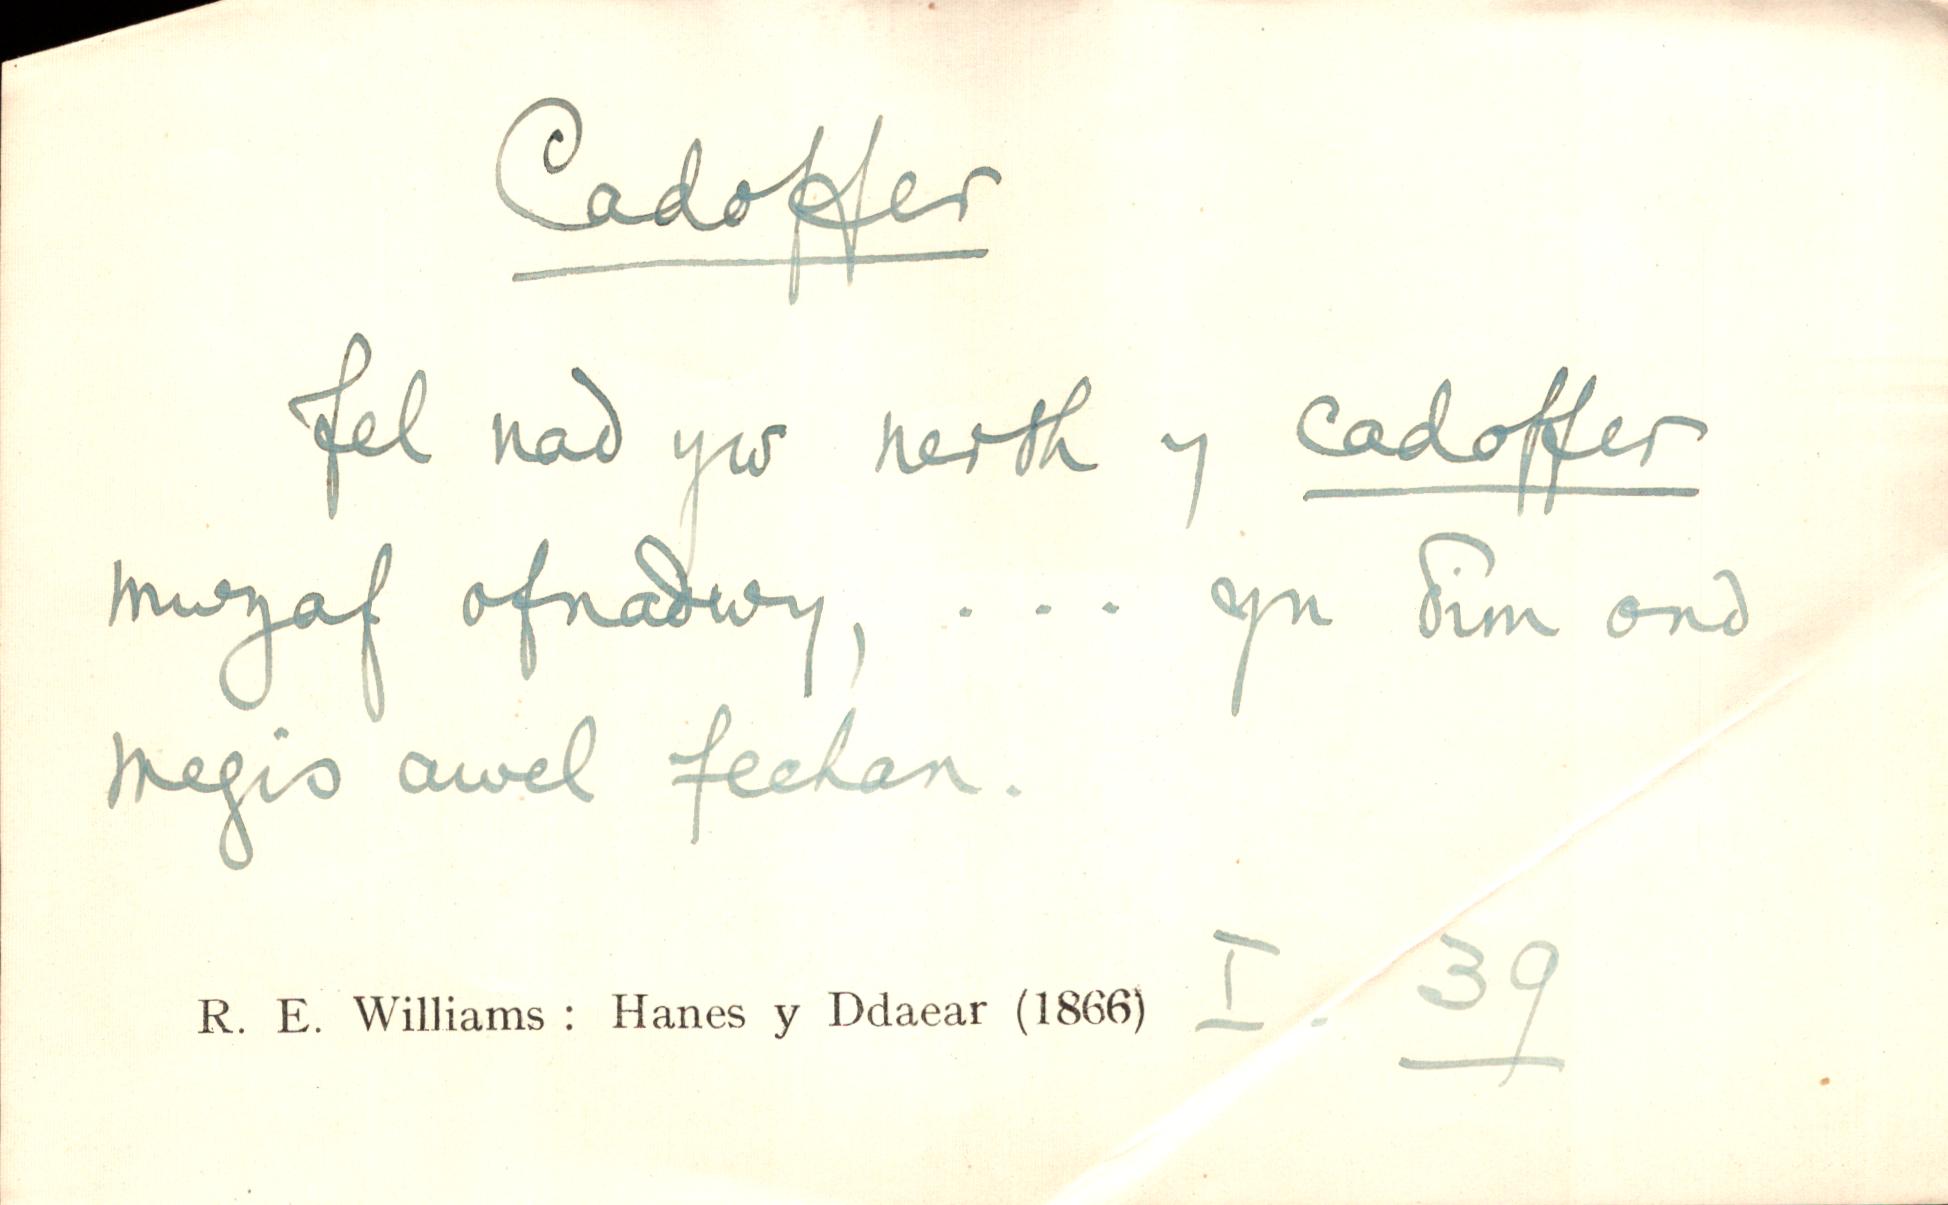 Cadoffer
fel nad yw nerth y cadoffer
mwyaf ofnadwy, . . . yn δim ond
megis awel fechan.
R. E. Williams : Hanes y Ddaear (1866) I. 39